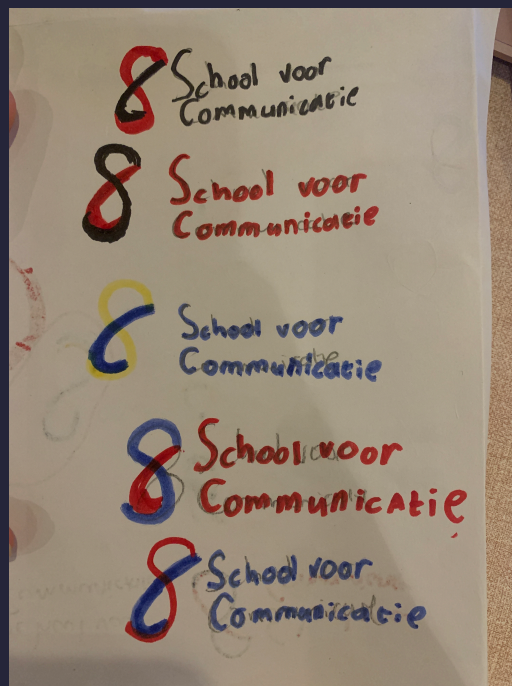 8 School voor
Communicatie
8 School voor
Communicatie
8 School voor
Communicatie
8 School voor
Communicatie
8 School voor
Communicatie